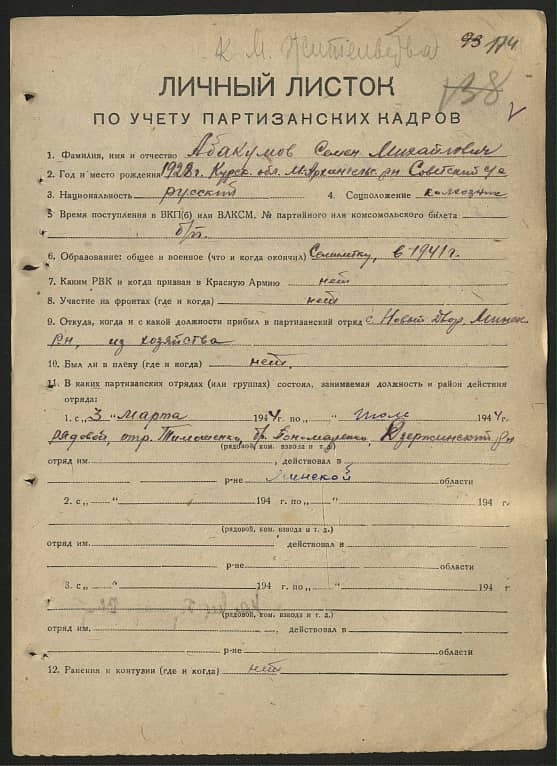 К. М.
93 174
138
ЛИЧНЫЙ ЛИСТОК
ПО УЧЕТУ ПАРТИЗАНСКИХ КАДРОВ
1. Фамилия, имя и отчество Абакумов Семен Михайлович
2. Год и место рождения 1928 г. Курск. обл. М-Архангельс. рн Советский с/с
3. Национальность русский 4. Соцположение колхозник
5 Время поступления в ВКП(б) или ВЛКСМ, № партийного или комсомольского билета
б/п.
6. Образование: общее и военное (что и когда окончил) Семилетку, в 1941 г.
7. Каким РВК и когда призван в Красную Армию нет
8. Участие на фронтах (где и когда) нет
9. Откуда, когда и с какой должности прибыл в партизанский отряд с. Новый Двор Минск.
рн, из хозяйства
10. Был ли в плену (где и когда) нет.
11. В каких партизанских отрядах (или группах) состоял, занимаемая должность и район действия
отряда:
1. с „3 " марта 1944 г. по „ " июль 1944 г.
рядовой, отр. Тимошенко, бр. Пономаренко, Дзержинский рн
(рядовой, ком. взвода и т. д.)
отряд им. , действовал в
р-не Минской области
2. с „ " 194 г. по „ " 194 г.
(рядовой, ком. взвода и т. д.)
отряд им. действовал в
р-не области
3. с „ " 194 г. по „ " 194 г
(рядовой, ком. взвода и т. д.)
отряд им. , действовал в
р-не области
12. Ранения и контузии (где и когда) нет